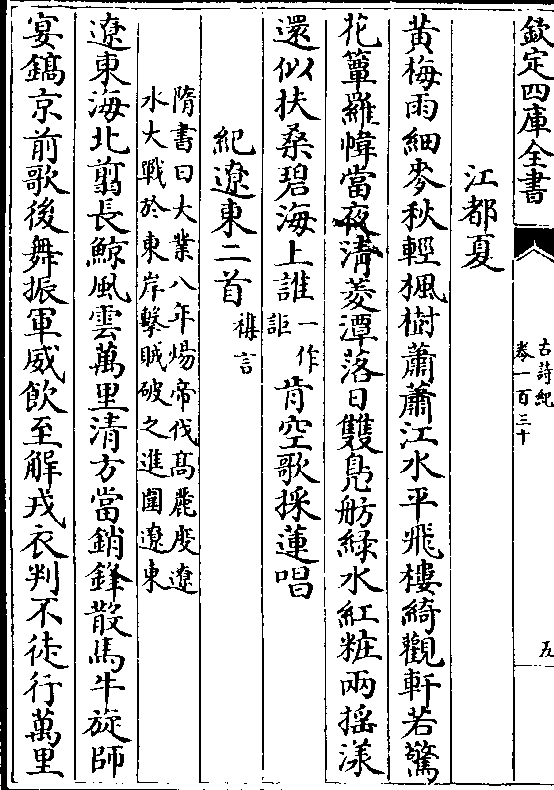 欽定四庫全書
古詩紀
卷一百三十
五
江都夏
黃梅雨細麥秋輕楓樹蕭蕭江水平飛樓綺觀軒若驚
花簟羅幃當夜清菱潭落日雙鳬舫綠水紅粧兩揺漾
還似扶桑碧海上誰一作詎肯空歌採蓮唱
紀遼東二首稱言
隋書曰大業八年煬帝伐髙麗度遼
水大戰於東岸擊賊破之進圍遼東
遼東海北翦長鯨風雲萬里清方當銷鋒散馬牛旋師
宴鎬京前歌後舞振軍威飲至解戎衣判不徒行萬里